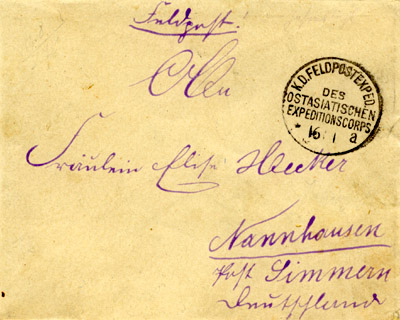 Feldpost.
An
K.D. FELDPOSTEXPED.
DES
OSTASIATISCHEN
EXPEDITIONSCORPS
16 1 a
Fräulein Elise Hecker
Nannhausen
Post Simmern
Deutschland